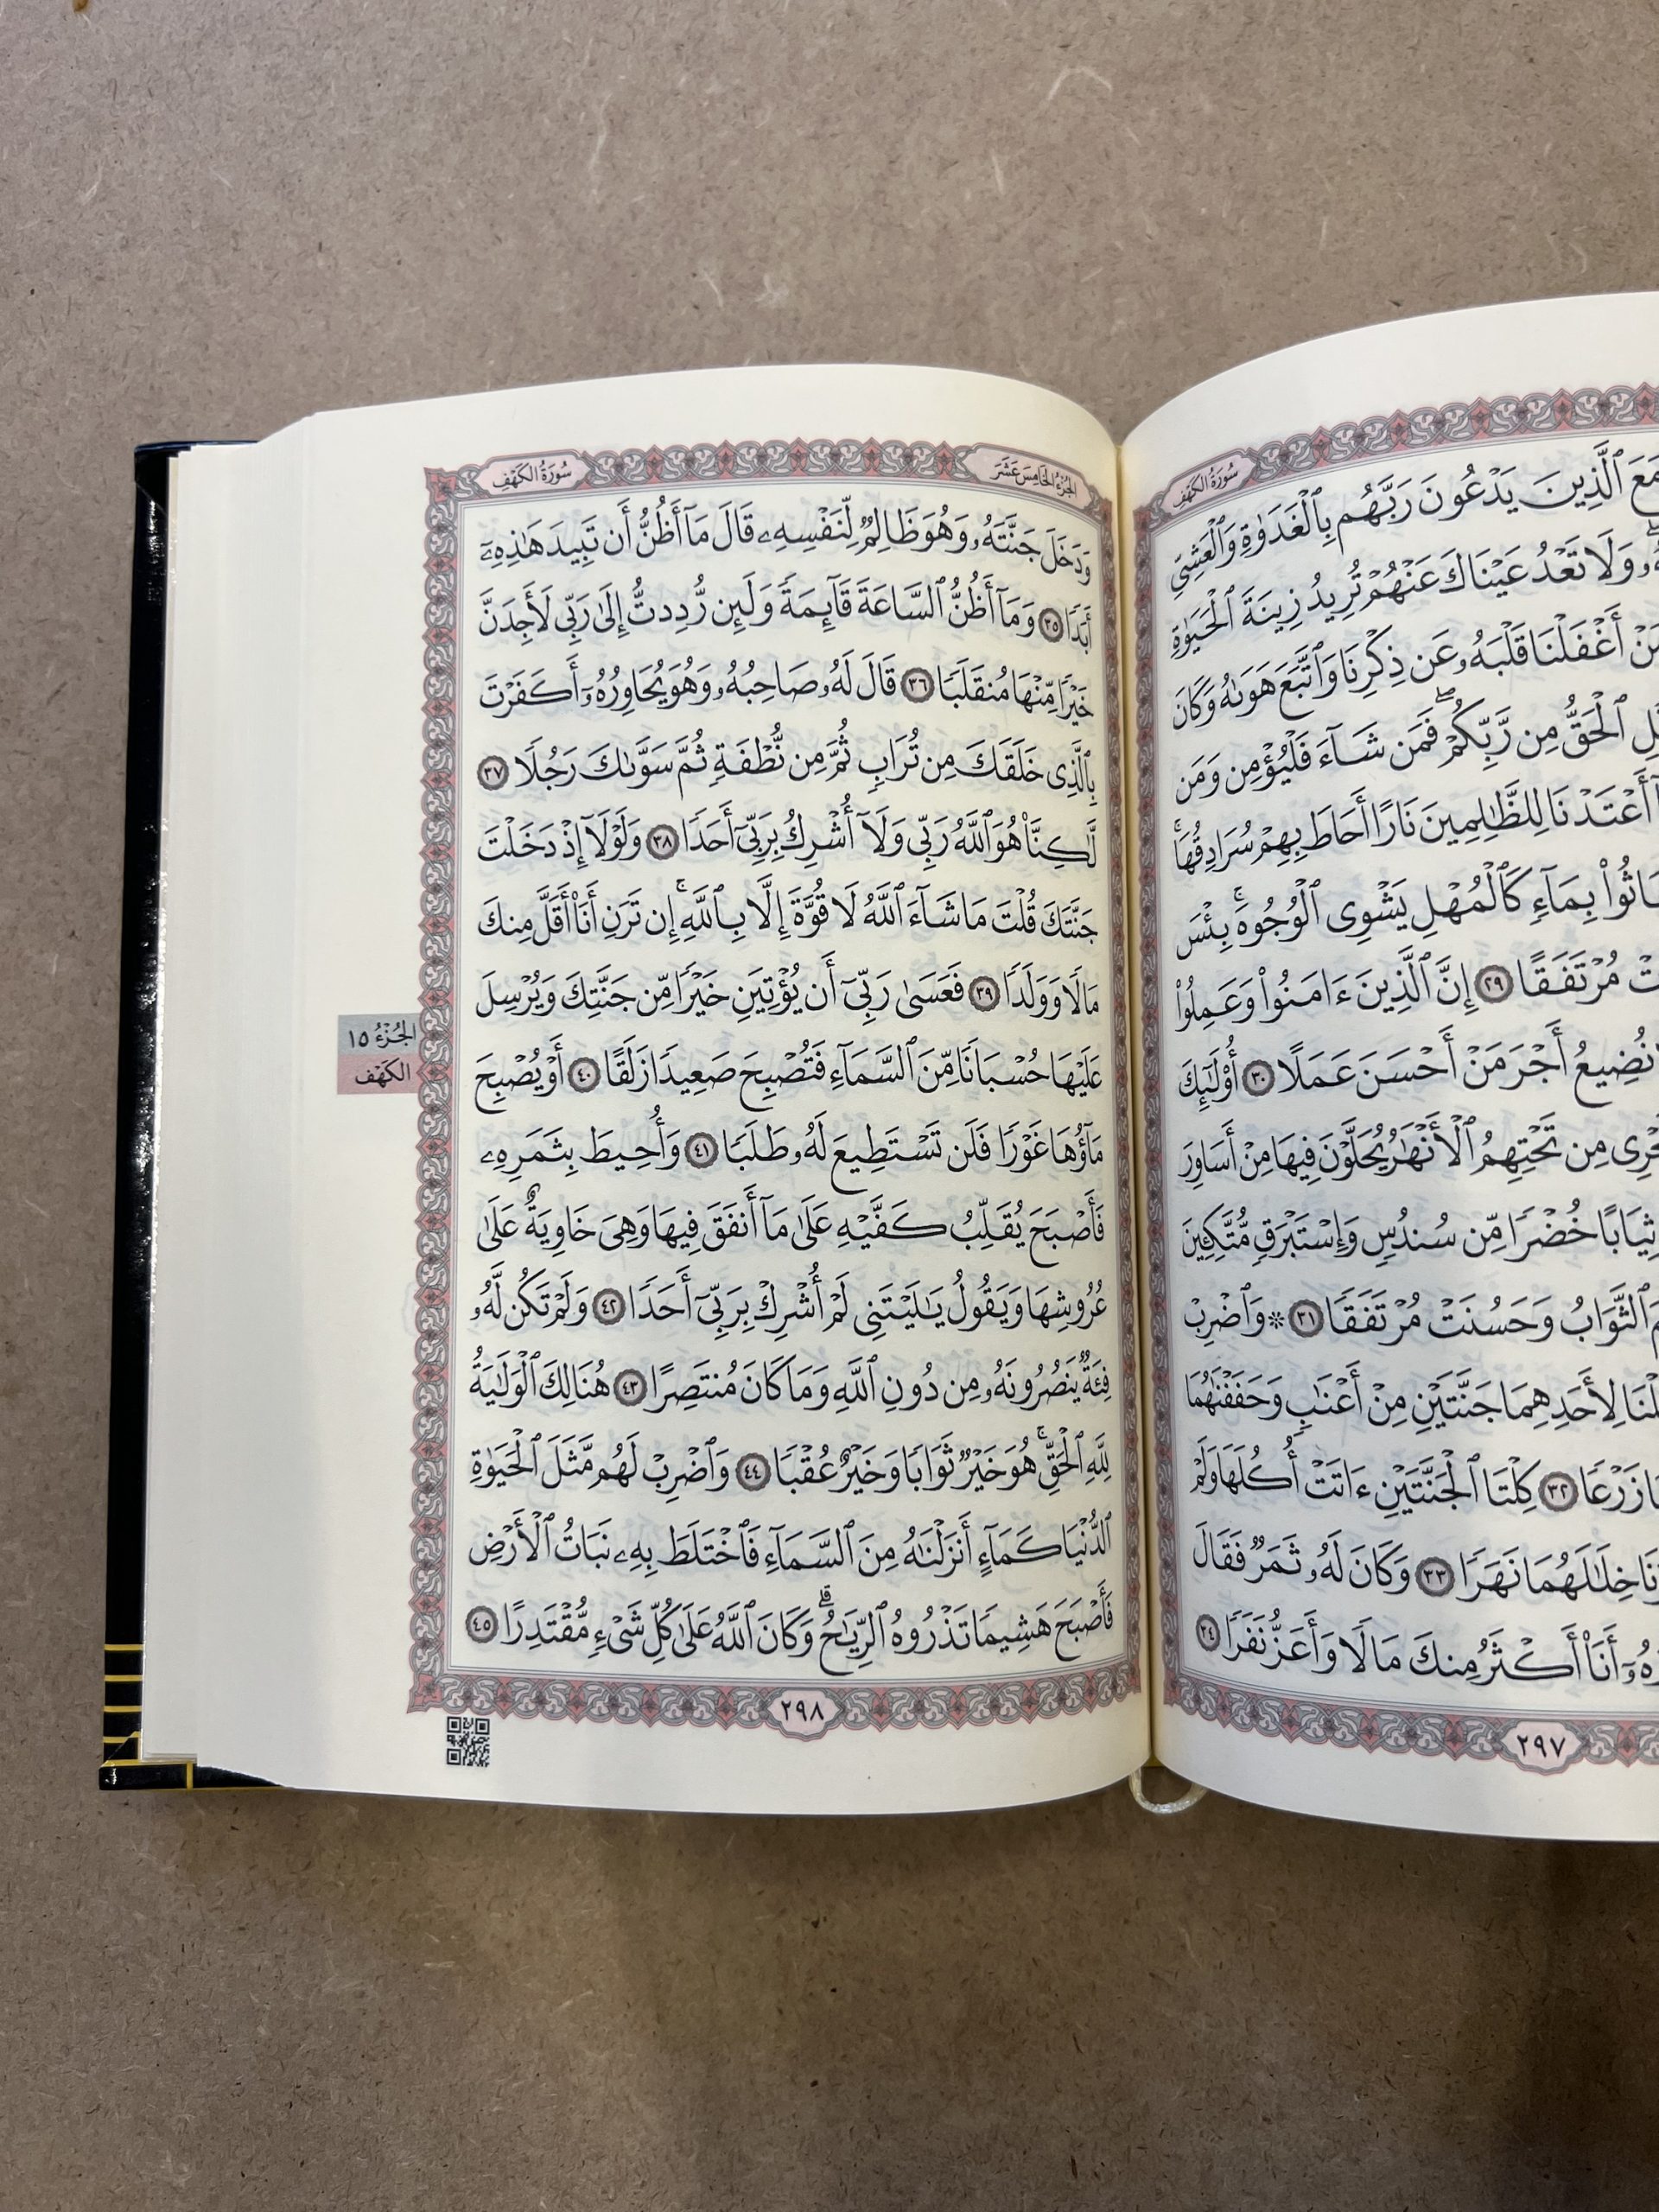 سُورَةُ الكَهْفِ
مَعَ ٱلَّذِينَ يَدْعُونَ رَبَّهُم بِٱلْغَدَوٰةِ وَٱلْعَشِىِّ
وَلَا تَعْدُ عَيْنَاكَ عَنْهُمْ تُرِيدُ زِينَةَ ٱلْحَيَوٰةِ
مَنْ أَغْفَلْنَا قَلْبَهُۥ عَن ذِكْرِنَا وَٱتَّبَعَ هَوَىٰهُ وَكَانَ
ٱلْحَقُّ مِن رَّبِّكُمْ ۖ فَمَن شَآءَ فَلْيُؤْمِن وَمَن
أَعْتَدْنَا لِلظَّٰلِمِينَ نَارًا أَحَاطَ بِهِمْ سُرَادِقُهَا ۚ
بِمَآءٍ كَٱلْمُهْلِ يَشْوِى ٱلْوُجُوهَ ۚ بِئْسَ
مُرْتَفَقًا ٢٩ إِنَّ ٱلَّذِينَ ءَامَنُوا۟ وَعَمِلُوا۟
نُضِيعُ أَجْرَ مَنْ أَحْسَنَ عَمَلًا ٣٠ أُو۟لَٰٓئِكَ
مِن تَحْتِهِمُ ٱلْأَنْهَٰرُ يُحَلَّوْنَ فِيهَا مِنْ أَسَاوِرَ
ثِيَابًا خُضْرًا مِّن سُندُسٍ وَإِسْتَبْرَقٍ مُّتَّكِـِٔينَ
ٱلثَّوَابُ وَحَسُنَتْ مُرْتَفَقًا ٣١ ۞ وَٱضْرِبْ
لِأَحَدِهِمَا جَنَّتَيْنِ مِنْ أَعْنَٰبٍ وَحَفَفْنَٰهُمَا
زَرْعًا ٣٢ كِلْتَا ٱلْجَنَّتَيْنِ ءَاتَتْ أُكُلَهَا وَلَمْ
خِلَٰلَهُمَا نَهَرًا ٣٣ وَكَانَ لَهُۥ ثَمَرٌ فَقَالَ
أَنَا۠ أَكْثَرُ مِنكَ مَالًا وَأَعَزُّ نَفَرًا ٣٤
٢٩٧
الجُزْءُ الخَامِسَ عَشَرَ
سُورَةُ الكَهْفِ
وَدَخَلَ جَنَّتَهُۥ وَهُوَ ظَالِمٌ لِّنَفْسِهِۦ قَالَ مَآ أَظُنُّ أَن تَبِيدَ هَٰذِهِۦٓ
أَبَدًا ٣٥ وَمَآ أَظُنُّ ٱلسَّاعَةَ قَآئِمَةً وَلَئِن رُّدِدتُّ إِلَىٰ رَبِّى لَأَجِدَنَّ
خَيْرًا مِّنْهَا مُنقَلَبًا ٣٦ قَالَ لَهُۥ صَاحِبُهُۥ وَهُوَ يُحَاوِرُهُۥٓ أَكَفَرْتَ
بِٱلَّذِى خَلَقَكَ مِن تُرَابٍ ثُمَّ مِن نُّطْفَةٍ ثُمَّ سَوَّىٰكَ رَجُلًا ٣٧
لَّٰكِنَّا۠ هُوَ ٱللَّهُ رَبِّى وَلَآ أُشْرِكُ بِرَبِّىٓ أَحَدًا ٣٨ وَلَوْلَآ إِذْ دَخَلْتَ
جَنَّتَكَ قُلْتَ مَا شَآءَ ٱللَّهُ لَا قُوَّةَ إِلَّا بِٱللَّهِ ۚ إِن تَرَنِ أَنَا۠ أَقَلَّ مِنكَ
مَالًا وَوَلَدًا ٣٩ فَعَسَىٰ رَبِّىٓ أَن يُؤْتِيَنِ خَيْرًا مِّن جَنَّتِكَ وَيُرْسِلَ
عَلَيْهَا حُسْبَانًا مِّنَ ٱلسَّمَآءِ فَتُصْبِحَ صَعِيدًا زَلَقًا ٤٠ أَوْ يُصْبِحَ
مَآؤُهَا غَوْرًا فَلَن تَسْتَطِيعَ لَهُۥ طَلَبًا ٤١ وَأُحِيطَ بِثَمَرِهِۦ
فَأَصْبَحَ يُقَلِّبُ كَفَّيْهِ عَلَىٰ مَآ أَنفَقَ فِيهَا وَهِىَ خَاوِيَةٌ عَلَىٰ
عُرُوشِهَا وَيَقُولُ يَٰلَيْتَنِى لَمْ أُشْرِكْ بِرَبِّىٓ أَحَدًا ٤٢ وَلَمْ تَكُن لَّهُۥ
فِئَةٌ يَنصُرُونَهُۥ مِن دُونِ ٱللَّهِ وَمَا كَانَ مُنتَصِرًا ٤٣ هُنَالِكَ ٱلْوَلَٰيَةُ
لِلَّهِ ٱلْحَقِّ ۚ هُوَ خَيْرٌ ثَوَابًا وَخَيْرٌ عُقْبًا ٤٤ وَٱضْرِبْ لَهُم مَّثَلَ ٱلْحَيَوٰةِ
ٱلدُّنْيَا كَمَآءٍ أَنزَلْنَٰهُ مِنَ ٱلسَّمَآءِ فَٱخْتَلَطَ بِهِۦ نَبَاتُ ٱلْأَرْضِ
فَأَصْبَحَ هَشِيمًا تَذْرُوهُ ٱلرِّيَٰحُ ۗ وَكَانَ ٱللَّهُ عَلَىٰ كُلِّ شَىْءٍ مُّقْتَدِرًا ٤٥
٢٩٨
الجُزْءُ ١٥
الكَهْف